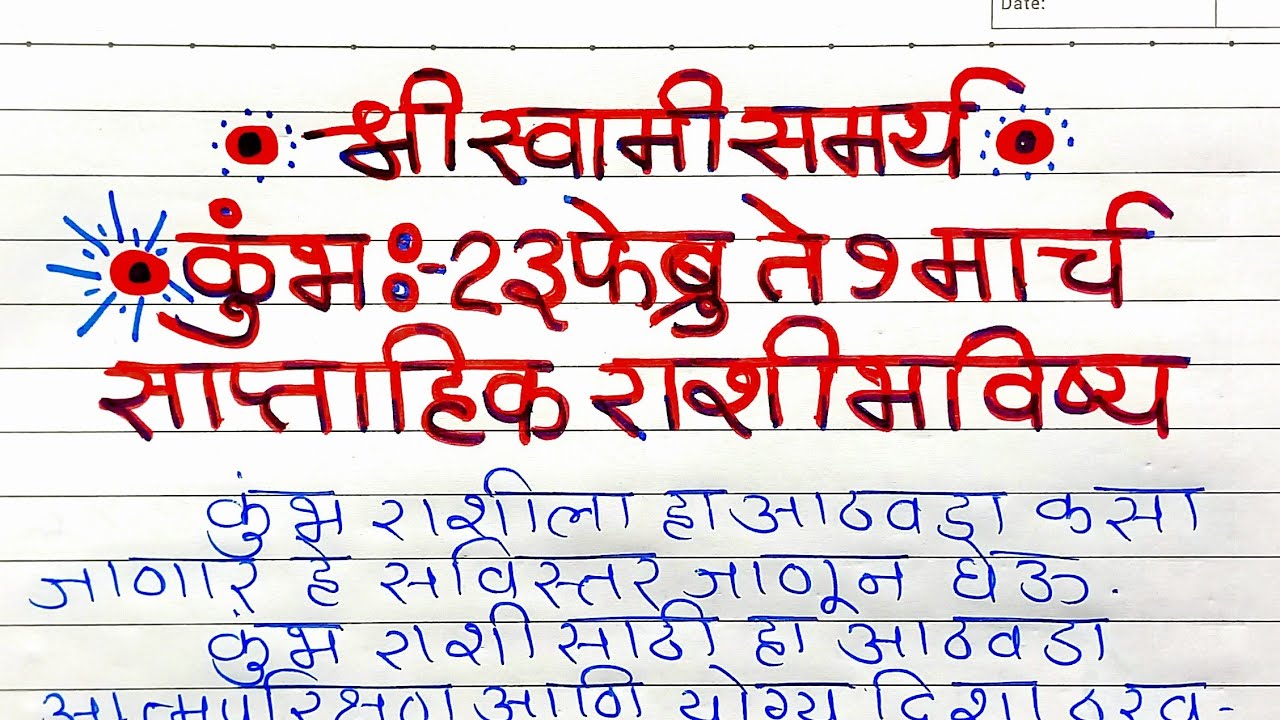 Date:
श्री स्वामी समर्थ
कुंभ :- २३ फेब्रु ते १ मार्च
साप्ताहिक राशीभविष्य
कुंभ राशीला हा आठवडा कसा
जाणार हे सविस्तर जाणून घेऊ.
कुंभ राशीसाठी हा आठवडा
आत्मपरिक्षण आणि योग्य दिशा ठरव-